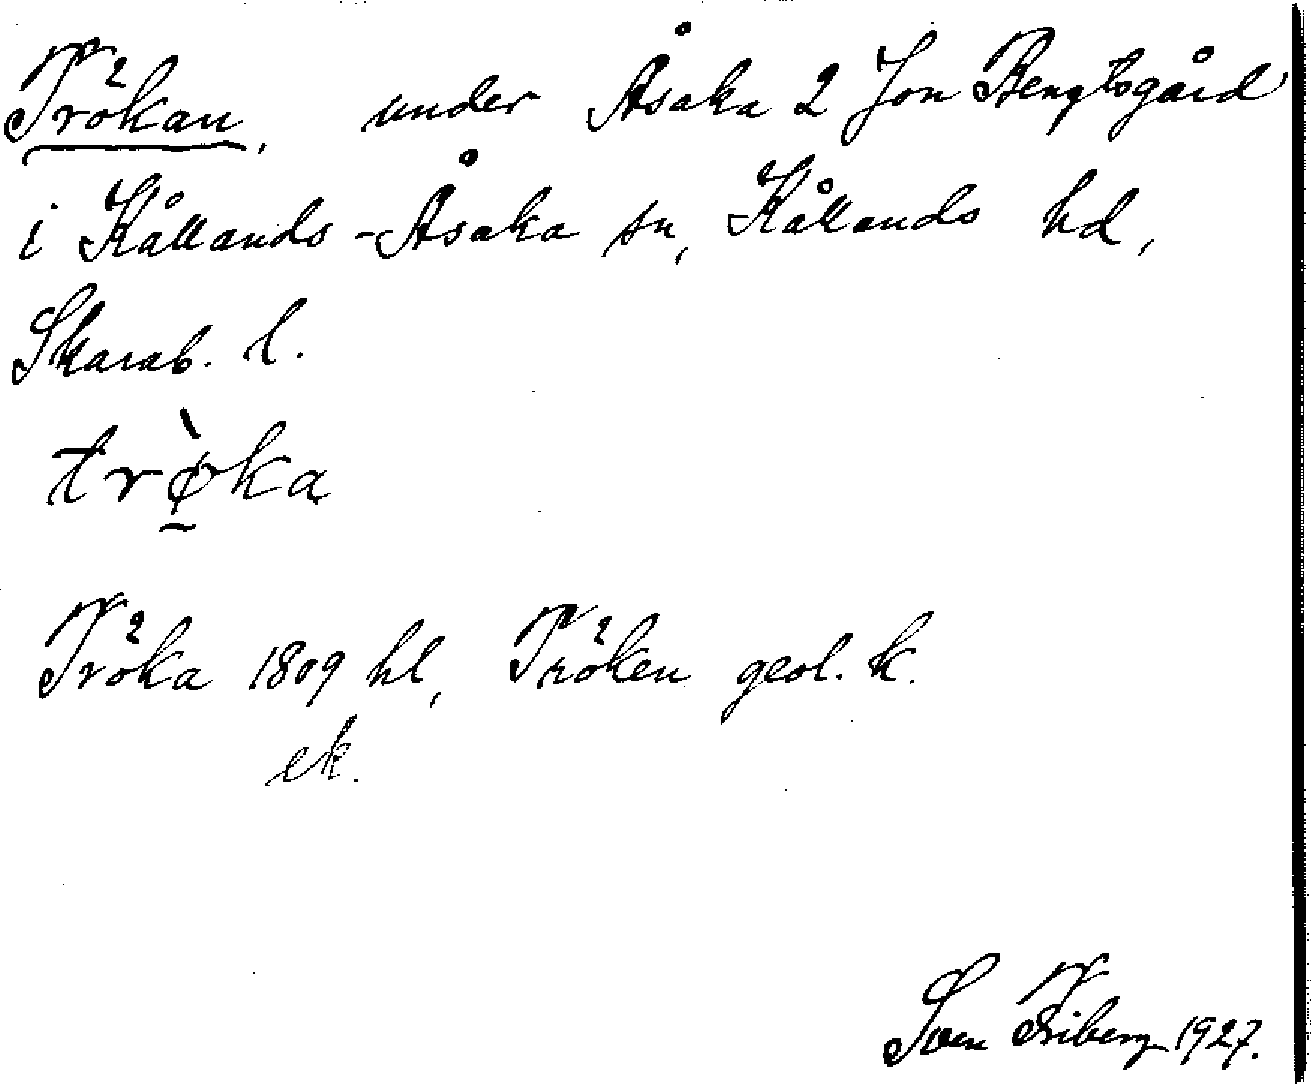 Trökan, under Åsaka 2 Jon Bengtsgård
i Kållands-Åsaka sn, Kållands hd,
Skarab. l.
trø̱̀ka
Tröka 1809 hl, Tröken geol. k.
ek.
Sven Friberg 1927.